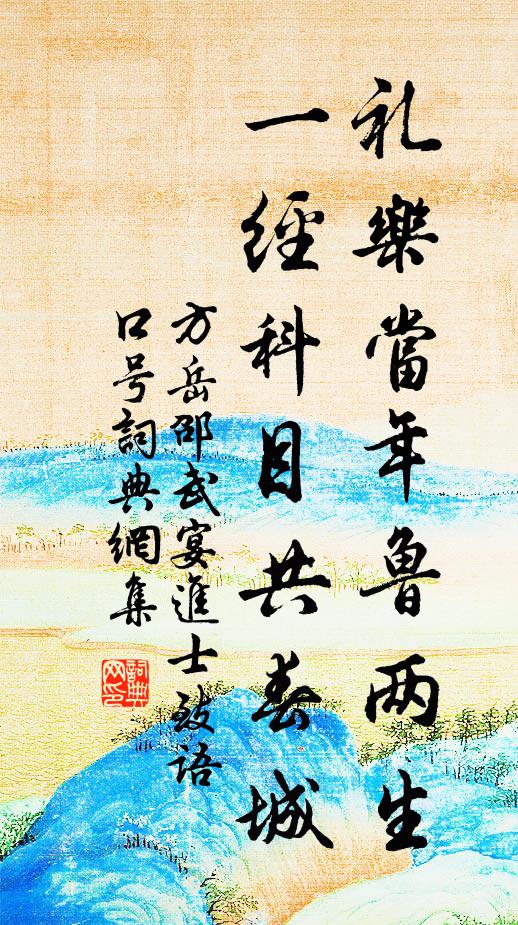 礼樂當年魯两生
一經科目共春城
方岳邵武宴進士致语
口号詞典網集
詞典网印